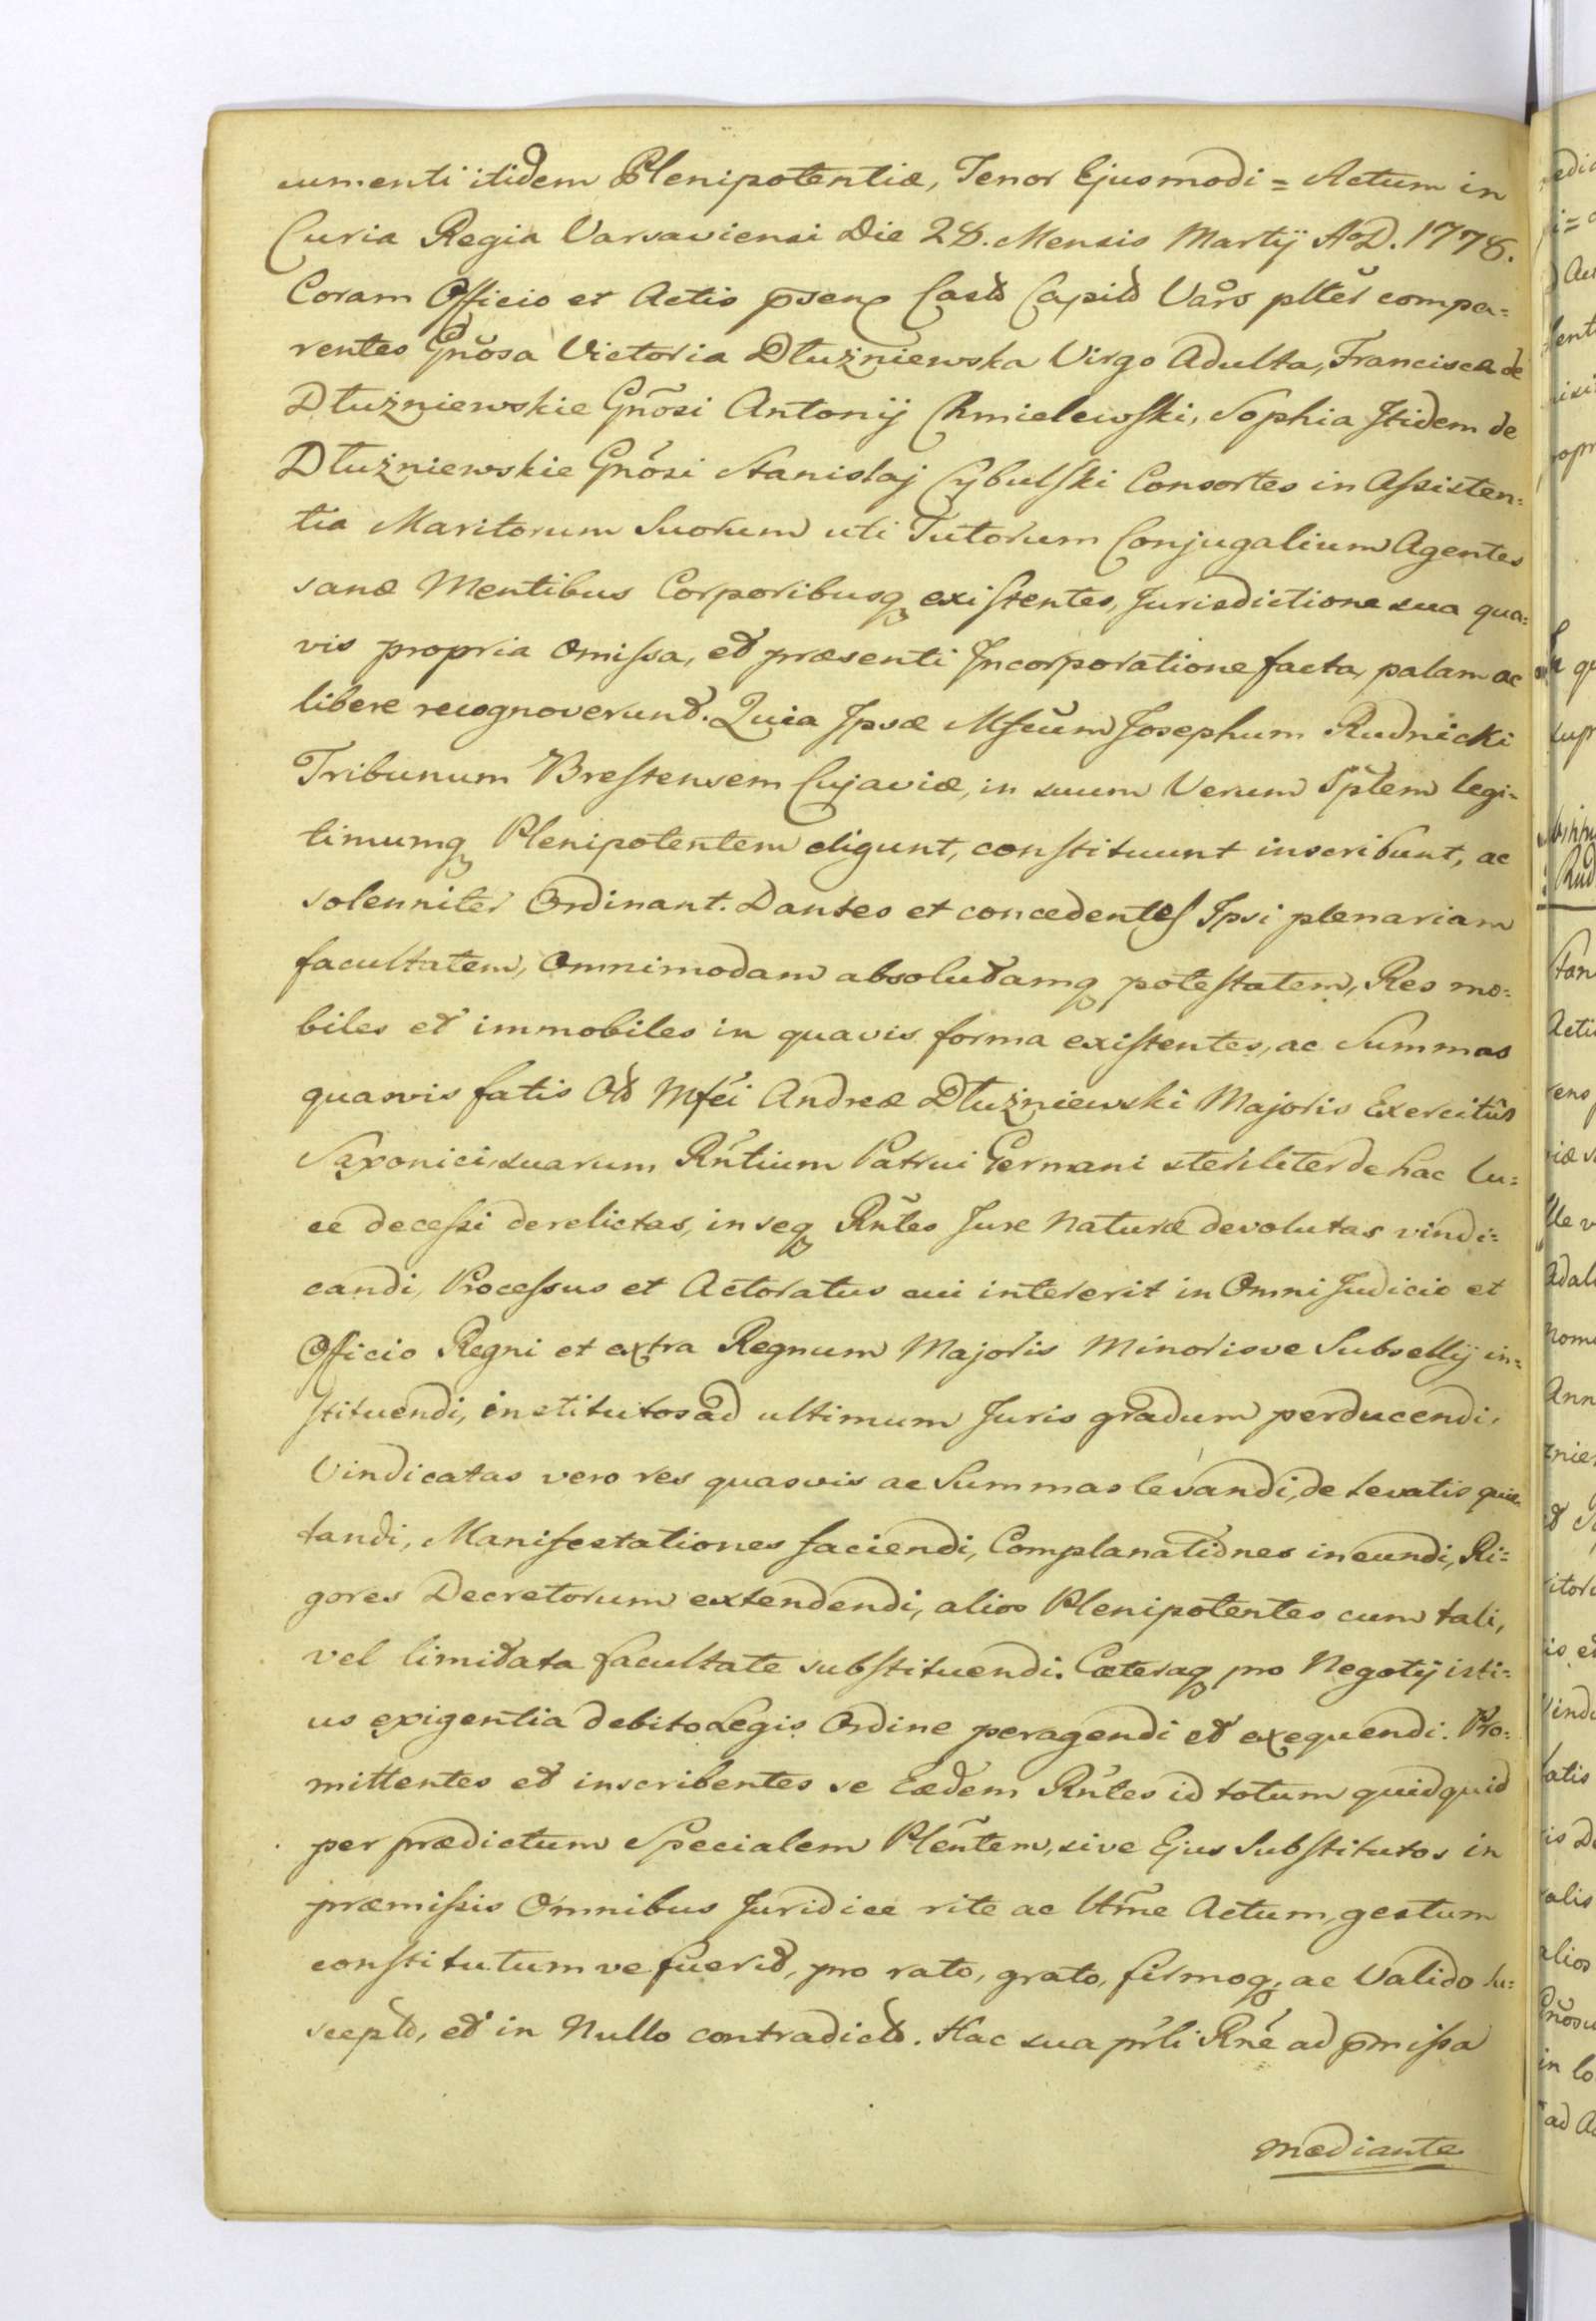 cumenti itidem Plenipotentiæ, Tenor Ejusmodi = Actum in
Curia Regia Varsaviensi Die 28. Mensis Martij AoD. 1778.
Coram Officio et Actis psen Castr Capitl Vars plter compa=
rentes Gnosa Victoria Dłużniewska Virgo Adulta, Francisca de
Dłużniewskie Gnosi Antonij Chmielewski, Sophia Itidem de
Dłużniewskie Gnosi Stanislaj Cybulski Consortes in Assisten=
tia Maritorum Suorum uti Tutorum Conjugalium Agentes
sanæ Mentibus Corporibusq existentes, Jurisdictione sua qua=
vis propria omissa, et præsenti Incorporatione facta, palam ac
libere recognoverunt. Quia Ipsæ Mfcum Josephum Rudnicki
Tribunum Brestensem Cujaviæ, in suum Verum Sptem legi=
timumq Plenipotentem eligunt, constituunt inscribunt, ac
solenniter Ordinant. Dantes et concedentes Ipsi plenariam
facultatem, Omnimodam absolutamq potestatem, Res mo=
biles et immobiles in quavis forma existentes, ac Summas
quasvis fatis Ol Mfci Andreæ Dłużniewski Majoris Exercitûs
Saxonici, suarum Rntium Patrui Germani steriliter de hac lu=
ce decessi derelictas, in seq Rntes Jure Naturæ devolutas vindi=
candi, Processus et Actoratus cui intererit in Omni Judicio et
Officio Regni et extra Regnum Majoris Minorisve Subsellij in=
stituendi, institutos ad ultimum Juris gradum perducendi,
Vindicatas vero res quasvis ac Summas levandi, de levatis quie=
tandi, Manifestationes faciendi, Complanationes ineundi, Ri=
gores Decretorum extendendi, alios Plenipotentes cum tali,
vel limitata facultate substituendi. Cæteraq pro Negotij isti=
us exigentia debito Legis Ordine peragendi et exequendi. Pro=
mittentes et inscribentes se Eædem Rntes id totum quidquid
per prædictum Specialem Plentem, sive Ejus Substitutos in
præmissis Omnibus Juridice rite ac ltme Actum, gestum
constitutumve fuerit, pro rato, grato, firmoq, ac Valido su=
scept, et in Nullo contradict. Hac sua prli Rne ad pmissa
mediante